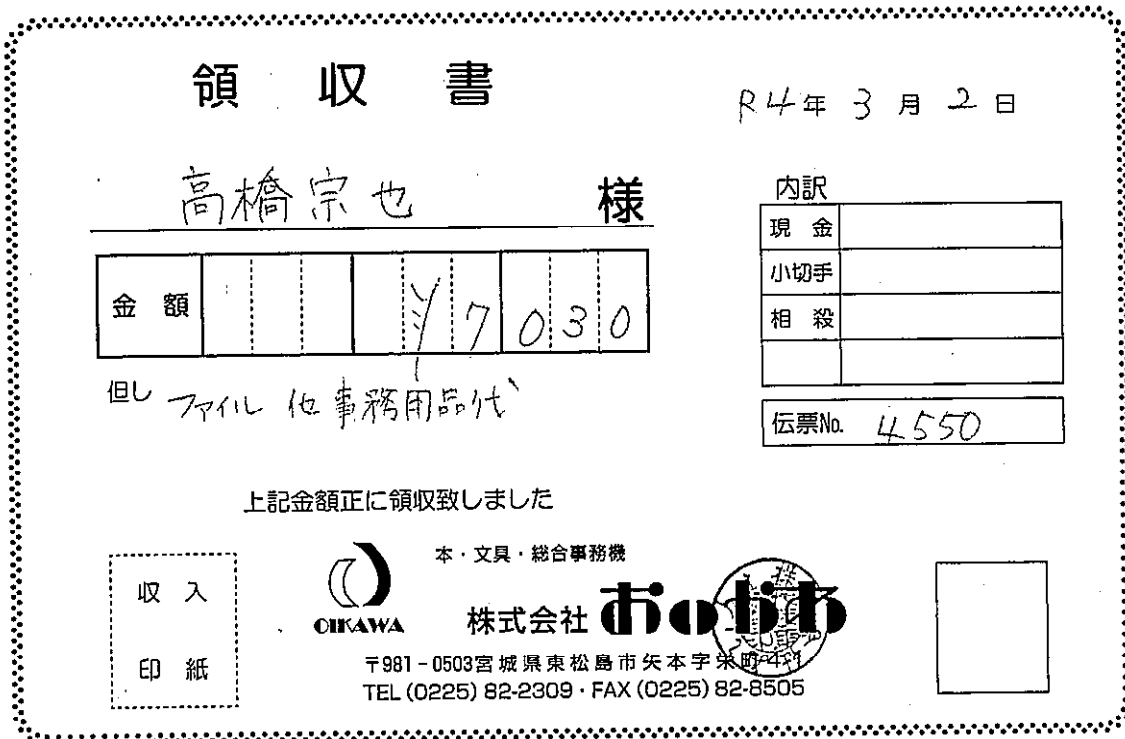 領収書
R4年3月2日
高橋宗也 様
内訳
現金
小切手
相殺
金額 ¥7030
但し ファイル他事務用品代
伝票No. 4550
上記金額正に領収致しました
収入
印紙
OIKAWA
本・文具・総合事務機
株式会社
〒981-0503宮城県東松島市矢本字栄町
TEL (0225) 82-2309・FAX (0225) 82-8505